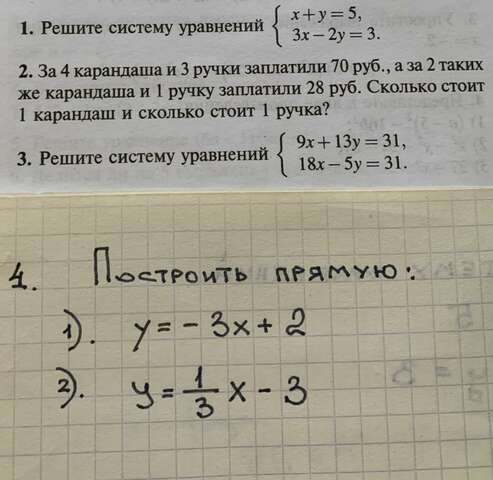 1. Решите систему уравнений { x + y = 5,
3x − 2y = 3.
2. За 4 карандаша и 3 ручки заплатили 70 руб., а за 2 таких
же карандаша и 1 ручку заплатили 28 руб. Сколько стоит
1 карандаш и сколько стоит 1 ручка?
3. Решите систему уравнений { 9x + 13y = 31,
18x − 5y = 31.
4. Построить прямую:
1). y = − 3x + 2
2). y = 1/3 x − 3